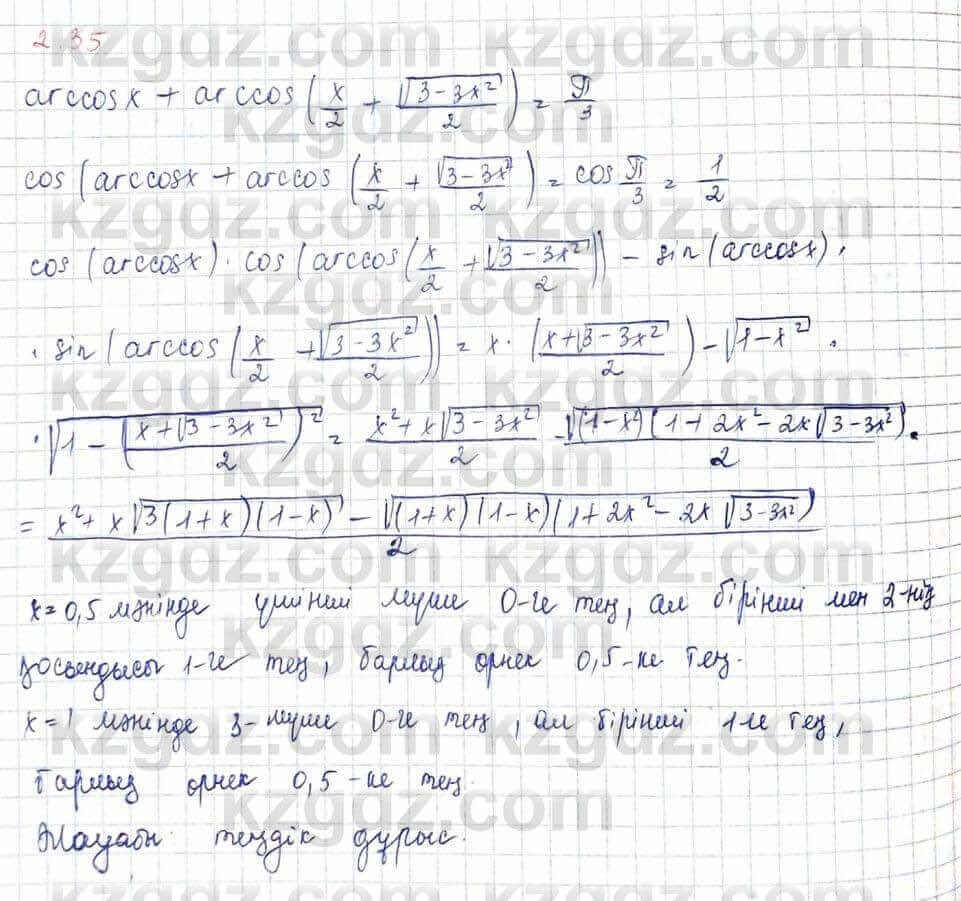 2.35
arccosx + arccos(x/2 + √(3-3x²)/2) = π/3
cos(arccosx + arccos(x/2 + √(3-3x²)/2) = cos π/3 = 1/2
cos(arccosx)·cos(arccos(x/2 + √(3-3x²)/2)) - sin(arccosx)·
·sin(arccos(x/2 + √(3-3x²)/2)) = x·((x+√(3-3x²))/2) - √(1-x²)·
·√(1-((x+√(3-3x²))/2)²) = (x²+x√(3-3x²))/2 - √((1-x²)(1+2x²-2x√(3-3x²)))/2.
= (x²+x√(3(1+x)(1-x)) - √((1+x)(1-x)(1+2x²-2x√(3-3x²))))/2
x=0,5 мәнінде үшінші мүше 0-ге тең, ал бірінші мен 2-нің
қосындысы 1-ге тең, барлық өрнек 0,5-ке тең.
x=1 мәнінде 3-мүше 0-ге тең, ал бірінші 1-ге тең,
барлық өрнек 0,5-ке тең.
Жауабы: теңдік дұрыс.
kzgdz.com